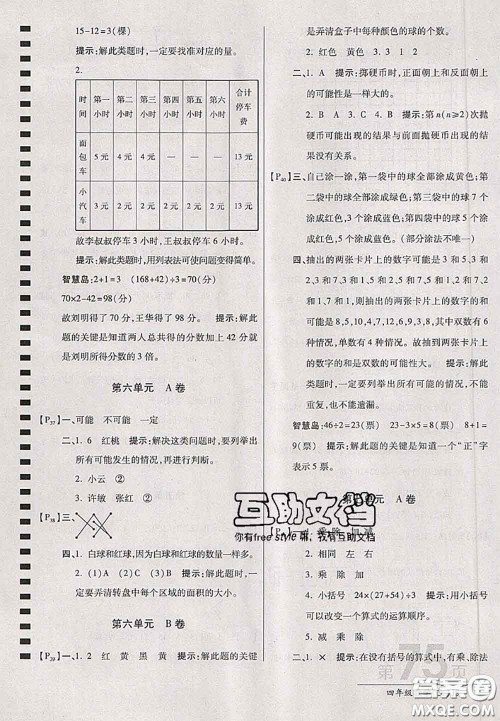 15-12=3(棵)
提示:解此类题时,一定要找准对应的量。
2.
时间 第一小时 第二小时 第三小时 第四小时 第五小时 第六小时 合计停车费
面包车 5元 4元 4元 13元
小汽车 3元 2元 2元 2元 2元 2元 13元
故李叔叔停车6小时,王叔叔停车3小时。
提示:解此类题时,利用列表法可使问题变得简单。
智慧岛:2+1=3 (168+42)÷3=70(分)
70×2-42=98(分)
故刘明得了70分,王华得了98分。 提示:解此
题的关键是知道两人总共得的分数加上42分就
是刘明所得分数的3倍。
第六单元 A卷
【P37】一、可能 不可能 一定
二、1. 6 红桃 提示:解决这类问题时,要列举出
所有可能发生的情况,再进行判断。
2. 小云 ②
3. 许敏 张红 ②
【P38】三、
四、1. 白球和红球,因为白球和红球的数量一样多。
2. (1)A (2)C (3)B 提示:解此类题时,一
定要弄清转盘中每个区域的面积的大小。
第六单元 B卷
【P39】一、1. 2 红 黄 黑 黄 提示:解此题的关键
是弄清盒子中每种颜色的球的个数。
2. 红色 黄色 3. 4 1 2
二、1. A 提示:掷硬币时,正面朝上和反面朝上
的可能性是一样大的。
2. B 3. B 4. A 提示:第n(n≥2)次抛
硬币可能出现的结果与前面抛硬币出现的结
果没有关系。
【P40】三、自己涂一涂,第一袋中的球全部涂成黄色;第
二袋中的球全部涂成绿色;第三袋中的球5个
涂成红色,3个涂成蓝色;第四袋中的球7个涂
成红色,1个涂成蓝色。(部分涂法不唯一)
四、抽出的两张卡片上的数字可能是3和5,3和
2,3和1,3和7,5和2,5和1,5和7,2和1,2
和7,1和7,共10种情况,抽出的两张卡片上
的数字的和可能是单数,也可能是双数。单数
有4种情况,双数有6种情况,所以两张卡片上
的数字的和是双数的可能性大。
智慧岛:46÷2=23(票) 23-3×5=8(票) 8+1=
9(票) 提示:解此题的关键是知道一个"正"字
表示5票。
互助文档
你有free style 嘛,我有互助文档
单元 A卷
乘 除 加 减
2. 相同 左 右
3. 乘 除 加
4. 小括号 24×(27+54)÷9 提示:小括号
可以改变一个算式的运算顺序。
5. 减 乘 除
提示:在没有括号的算式中,有乘、除法和
第75页
四年级
答案圈
MXQE.COM